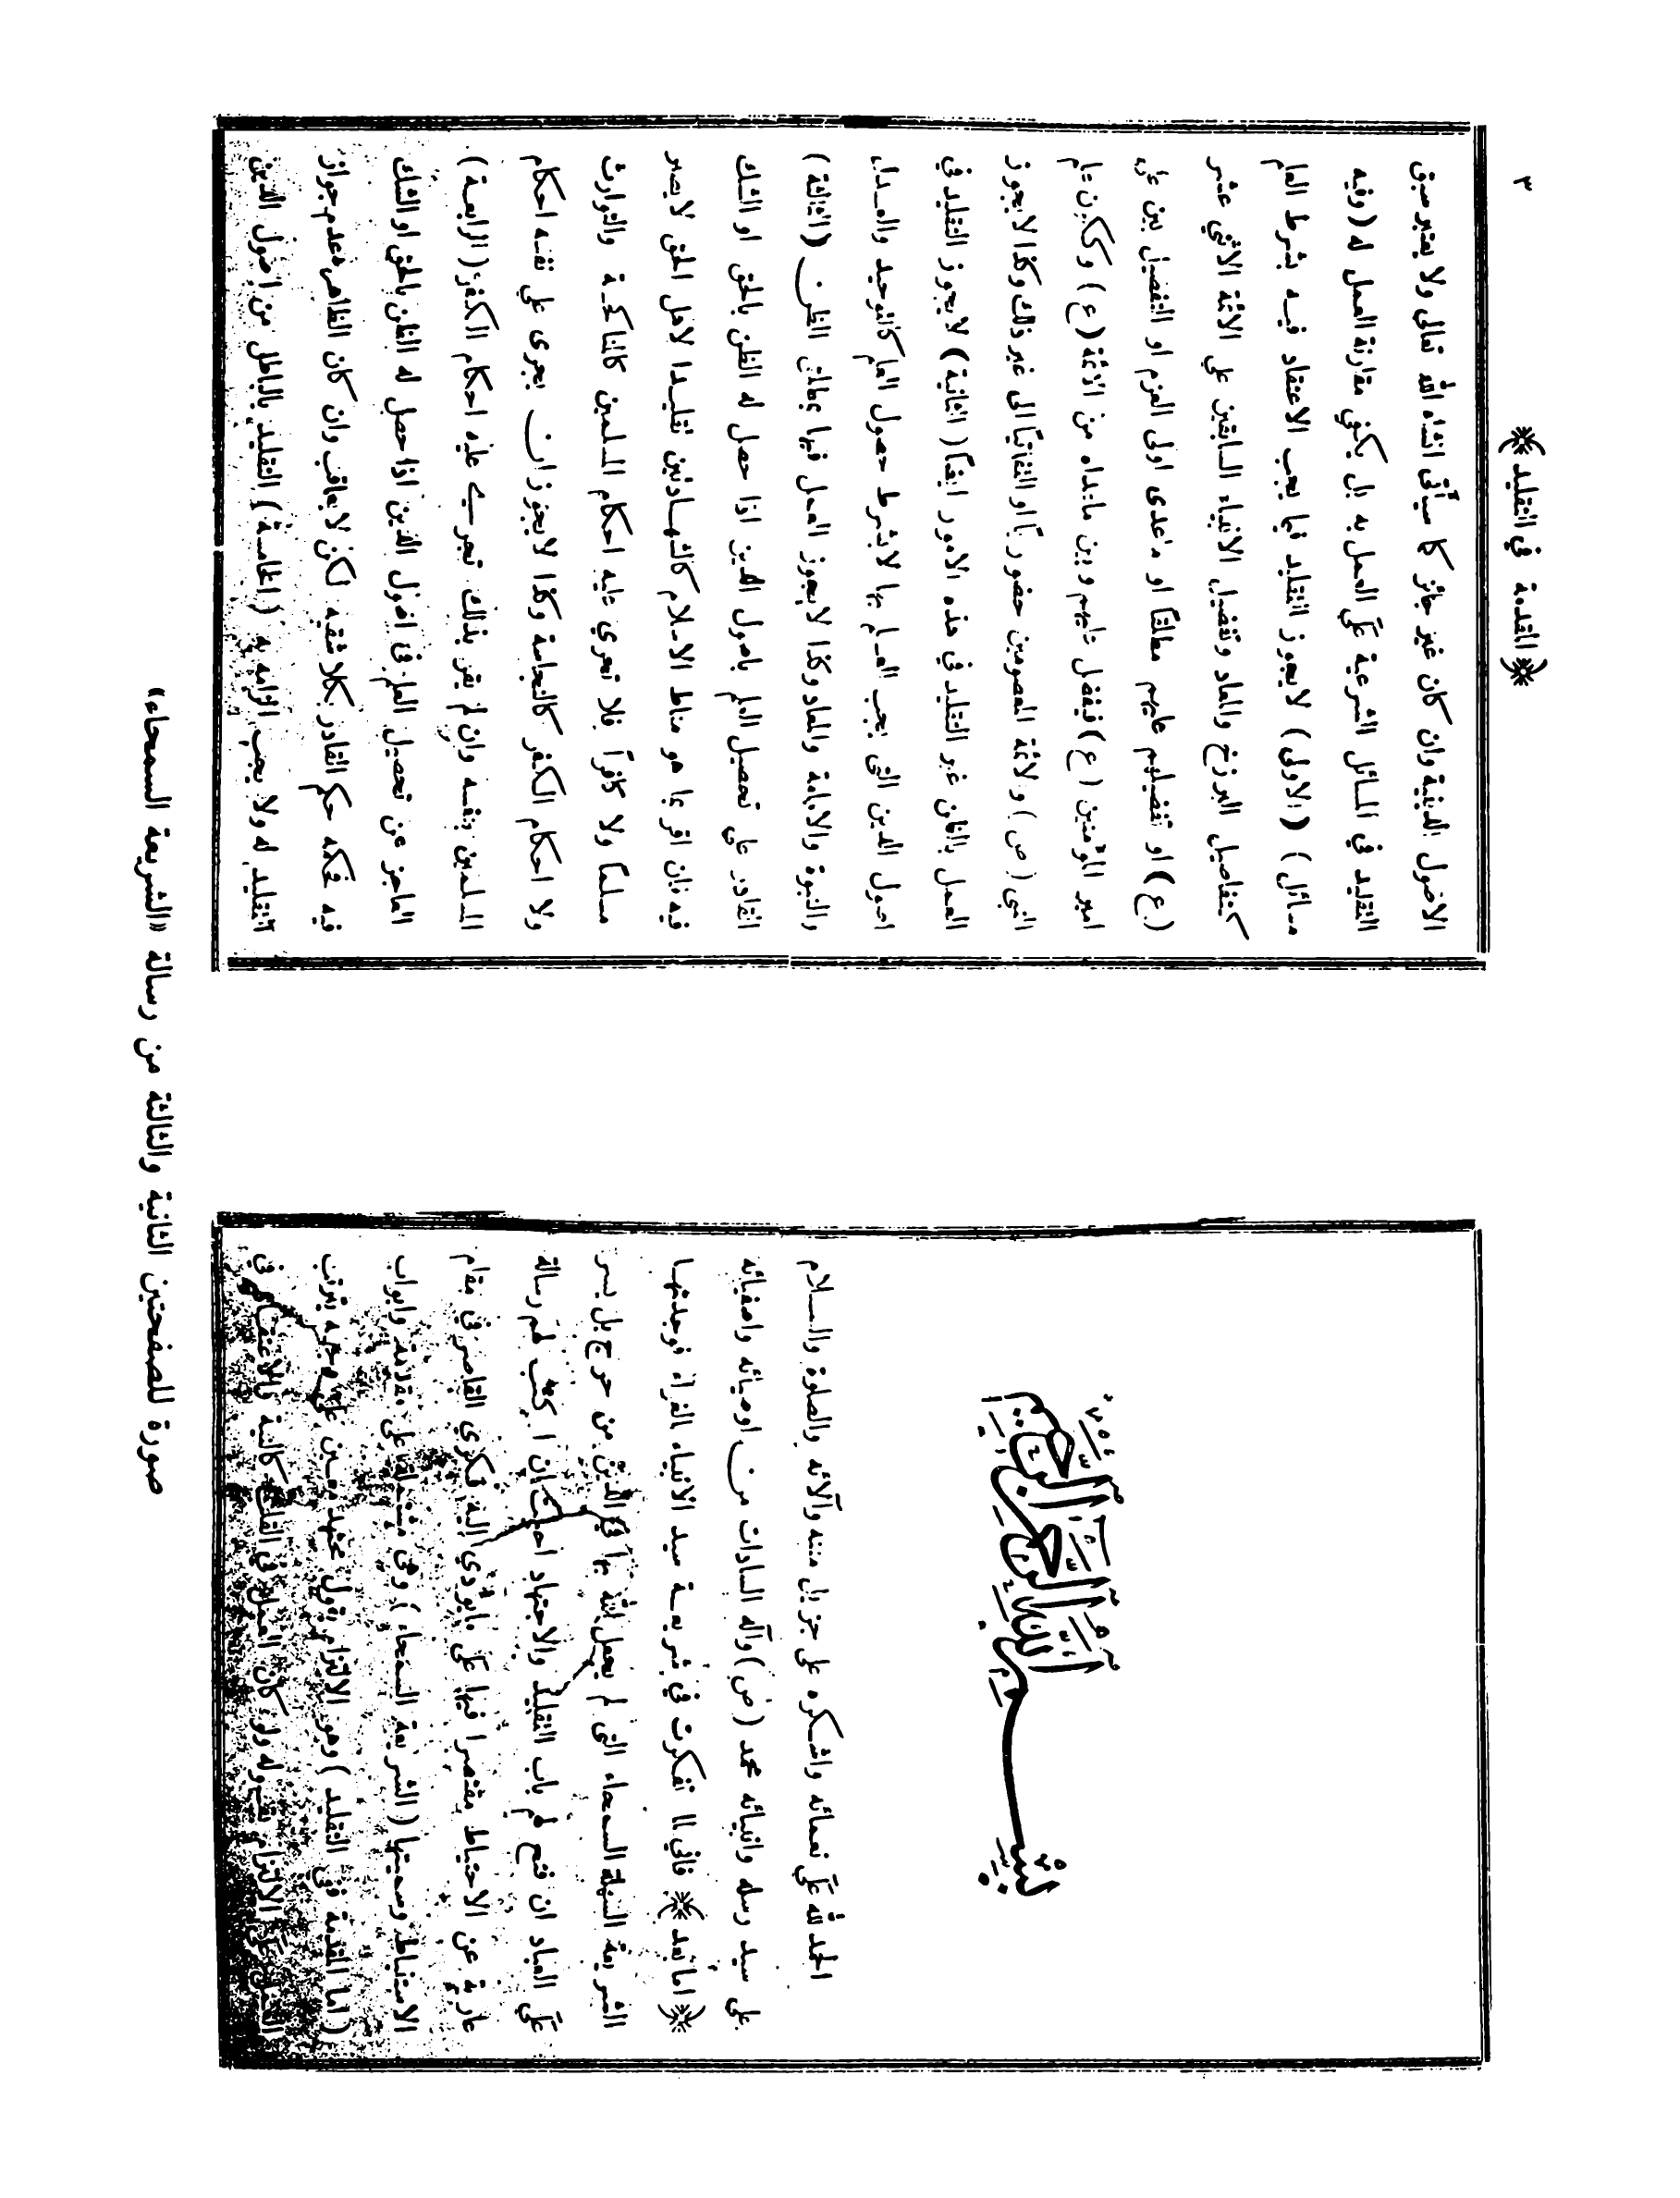 بسم الله الرحمن الرحيم
الحمد لله على نعمائه واشكره على جزيل مننه وآلائه والصلوة والسلام
على سيد رسله وانبيائه محمد (ص) وآله السادات من اوصيائه واصفيائه
﴿ اما بعد ﴾ فاني لما تفكرت في شريعة سيد الانبياء الغراء فوجدتها
الشريعة السهلة السمحاء التي لم يجعل الله بها في الدين من حرج بل يسر
على العباد ان فتح لهم باب التقليد والاجتهاد احببت ان اكتب لهم رسالة
عارية عن الاحتياط مقتصرا فيها على ما يؤدي اليه فكري القاصر في مقام
الاستنباط وسميتها (الشريعة السمحاء) وهي مشتملة على مقدمة وابواب
(اما المقدمة ففي التقليد) وهو الالتزام بقول مجتهد معين على وجه يترتب
العمل على الالتزام بقوله ولو كان العمل في القلب كالنية والاعتقاد في
٣
﴿ المقدمة في التقليد ﴾
الاصول الدينية وان كان غير جائز كما سيأتي انشاء الله تعالى ولا يعتبر سبق
التقليد في المسائل الشرعية على العمل به بل يكفي مقارنة العمل له (وفيه
مسائل) (الاولى) لا يجوز التقليد فيما يجب الاعتقاد فيه بشرط العلم
كتفاصيل البرزخ والمعاد وتفضيل الانبياء السابقين على الائمة الاثني عشر
(ع) او تفضيلهم عليهم مطلقا او ما عدى اولى العزم او التفصيل بين علي
امير المؤمنين (ع) فيفضل عليهم وبين ماعداه من الائمة (ع) وككون علم
النبي (ص) والائمة المعصومين حضوريا او التفاتيا الى غير ذلك وكذا لا يجوز
العمل بالظن غير التقليد في هذه الامور ايضا (الثانية) لا يجوز التقليد في
اصول الدين التي يجب العلم بها لا بشرط حصول العلم كالتوحيد والعدل
والنبوة والامامة والمعاد وكذا لا يجوز العمل فيها بمطلق الظن (الثالثة)
القادر على تحصيل العلم باصول الدين اذا حصل له الظن بالحق او الشك
فيه فان اقر بما هو مناط الاسلام كالشهادتين تقليدا لاهل الحق لا يصير
مسلما ولا كافراً فلا تجري عليه احكام المسلمين كالمناكحة والتوارث
ولا احكام الكفر كالنجاسة وكذا لا يجوز ان يجرى على نفسه احكام
المسلمين بنفسه وان لم يقر بذلك تجري عليه احكام الكفر (الرابعة)
العاجز عن تحصيل العلم في اصول الدين اذا حصل له الظن بالحق او الشك
فيه فحكمه حكم القادر بكلا شقيه لكن لا يعاقب وان كان الظاهر عدم جواز
التقليد له ولا يجب الزامه به (الخامسة) التقليد بالباطل من اصول الدين
صورة للصفحتين الثانية والثالثة من رسالة «الشريعة السمحاء»